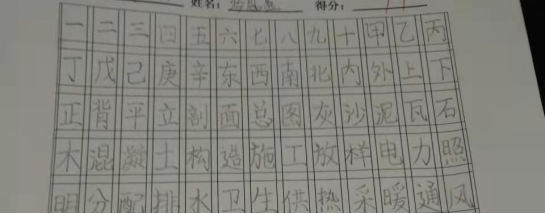 姓名: 得分:
一二三四五六七八九十甲乙丙
丁戊己庚辛东西南北内外上下
正背平立剖面总图灰沙泥瓦石
木混凝土构造施工放样电力照
明分配排水卫生供热采暖通风